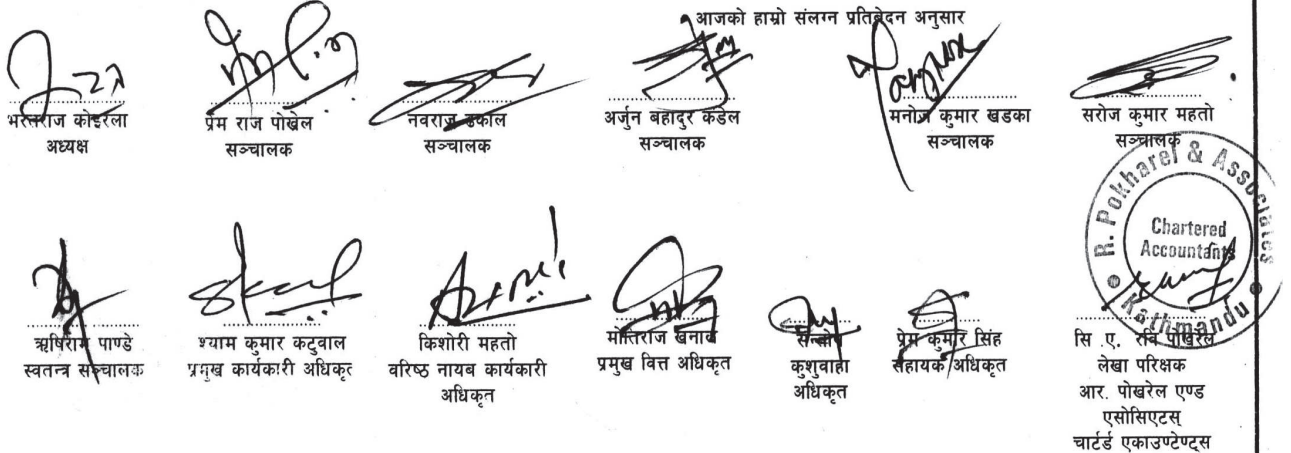 आजको हाम्रो संलग्न प्रतिवेदन अनुसार
भरतराज कोइरला
अध्यक्ष
प्रेम राज पोखेल
सञ्चालक
नवराज ढकाल
सञ्चालक
अर्जुन बहादुर कंडेल
सञ्चालक
मनोज कुमार खडका
सञ्चालक
सरोज कुमार महतो
सञ्चालक
R. Pokharel & Associates
Chartered
Accountants
Kathmandu
ऋषिराम पाण्डे
स्वतन्त्र सञ्चालक
श्याम कुमार कटुवाल
प्रमुख कार्यकारी अधिकृत
किशोरी महतो
वरिष्ठ नायब कार्यकारी
अधिकृत
मोतिराज खनाल
प्रमुख वित्त अधिकृत
सन्तोष
कुशुवाहा
अधिकृत
प्रेम कुमार सिंह
सहायक अधिकृत
सि .ए. रवि पोखरेल
लेखा परिक्षक
आर. पोखरेल एण्ड
एसोसिएटस्
चार्टर्ड एकाउण्टेण्ट्स